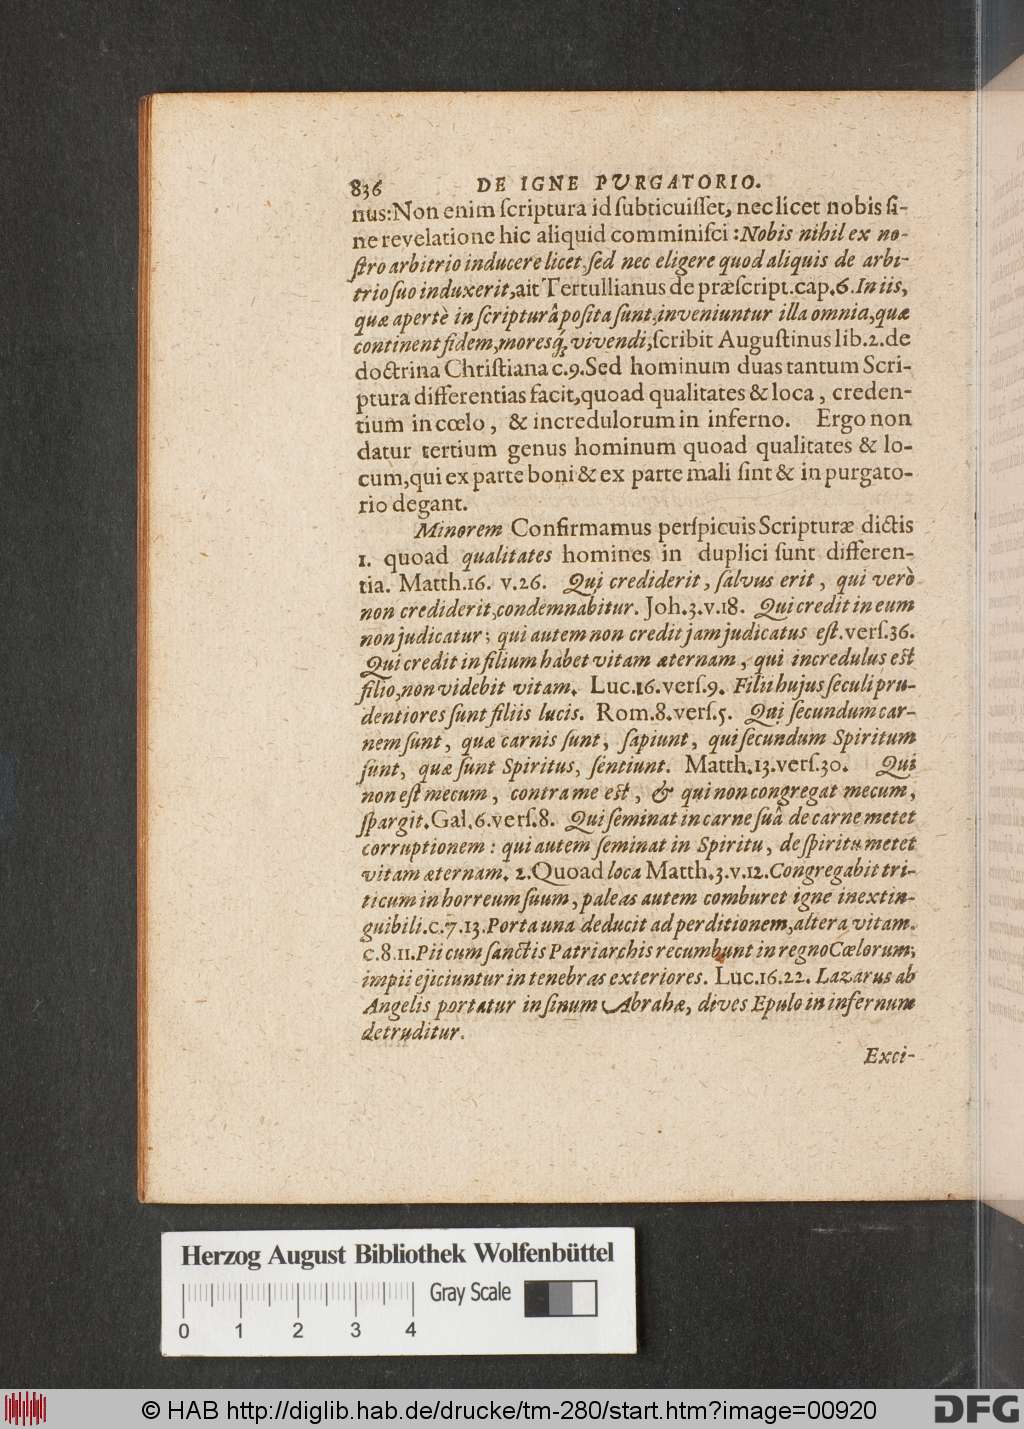 836 DE IGNE PVRGATORIO.
nus:Non enim ſcriptura id ſubticuiſſet, nec licet nobis ſi-
ne revelatione hic aliquid comminiſci :Nobis nihil ex no-
ſtro arbitrio inducere licet,ſed nec eligere quod aliquis de arbi-
trio ſuo induxerit,ait Tertullianus de præſcript.cap.6.In iis,
quæ apertè in ſcripturâ poſita ſunt,inveniuntur illa omnia,quæ
continent fidem,moresq́; vivendi,ſcribit Auguſtinus lib.2.de
doctrina Chriſtiana c.9.Sed hominum duas tantum Scri-
ptura differentias facit,quoad qualitates & loca, creden-
tium in cœlo, & incredulorum in inferno. Ergo non
datur tertium genus hominum quoad qualitates & lo-
cum,qui ex parte boni & ex parte mali ſint & in purgato-
rio degant.
Minorem Confirmamus perſpicuis Scripturæ dictis
1. quoad qualitates homines in duplici ſunt differen-
tia. Matth.16. v.26. Qui crediderit, ſalvus erit, qui verò
non crediderit,condemnabitur. Joh.3.v.18. Qui credit in eum
non judicatur; qui autem non credit jam judicatus eſt.verſ.36.
Qui credit in filium habet vitam æternam, qui incredulus eſt
filio,non videbit vitam. Luc.16.verſ.9. Filii hujus ſeculi pru-
dentiores ſunt filiis lucis. Rom.8.verſ.5. Qui ſecundum car-
nem ſunt, quæ carnis ſunt, ſapiunt, qui ſecundum Spiritum
ſunt, quæ ſunt Spiritus, ſentiunt. Matth.13.verſ.30. Qui
non eſt mecum, contra me eſt, & qui non congregat mecum,
ſpargit.Gal.6.verſ.8. Qui ſeminat in carne ſuâ de carne metet
corruptionem: qui autem ſeminat in Spiritu, de ſpiritu metet
vitam æternam. 2.Quoad loca Matth.3.v.12.Congregabit tri-
ticum in horreum ſuum, paleas autem comburet igne inextin-
guibili.c.7.13.Porta una deducit ad perditionem,altera vitam.
c.8.11.Pii cum ſanctis Patriarchis recumbunt in regno Cœlorum;
impii ejiciuntur in tenebras exteriores. Luc.16.22. Lazarus ab
Angelis portatur in ſinum Abrahæ, dives Epulo in infernum
detruditur.
Exci-
Herzog August Bibliothek Wolfenbüttel
Gray Scale
0 1 2 3 4
© HAB http://diglib.hab.de/drucke/tm-280/start.htm?image=00920
DFG